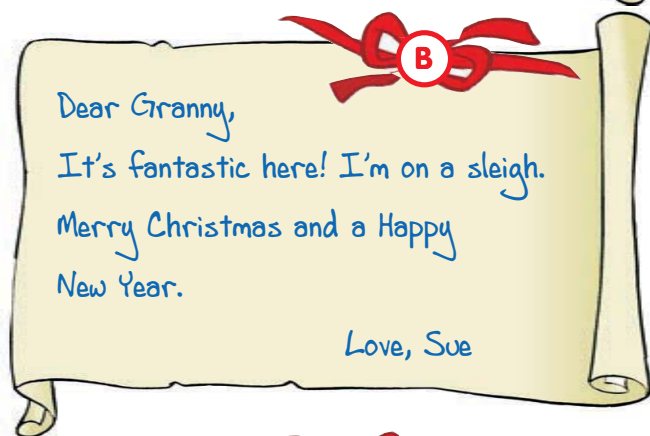 B
Dear Granny,
It's fantastic here! I'm on a sleigh.
Merry Christmas and a Happy
New Year.
Love, Sue